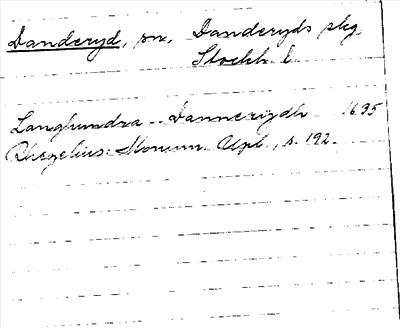 Danderyd, sn, Danderyds skg.
Stockh. l.
Langhundra -- Dannerijdh 1695
Rhezelius: Monum. Upl., s. 192.